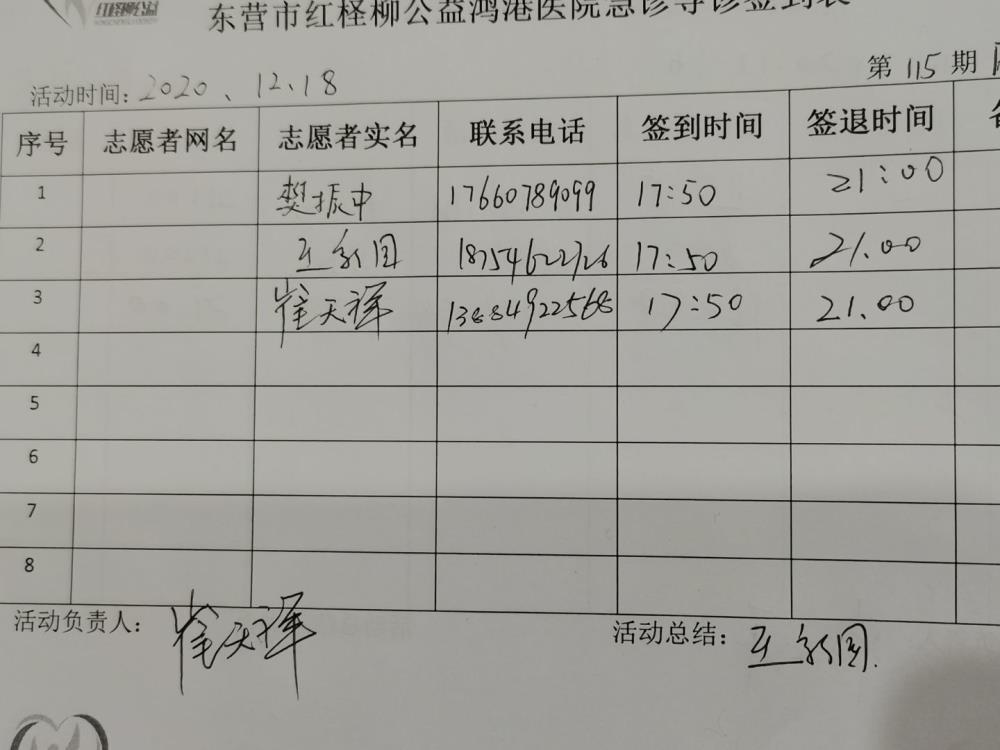 红柽柳公益
东营市红柽柳公益鸿港医院急诊导诊签到表
活动时间：2020、12、18 第 115 期
序号 志愿者网名 志愿者实名 联系电话 签到时间 签退时间
1 樊振中 17660789099 17:50 21:00
2 王新国 17:50 21.00
3 崔天祥 13884922568 17:50 21.00
4
5
6
7
8
活动负责人： 崔天祥 活动总结： 王新国.